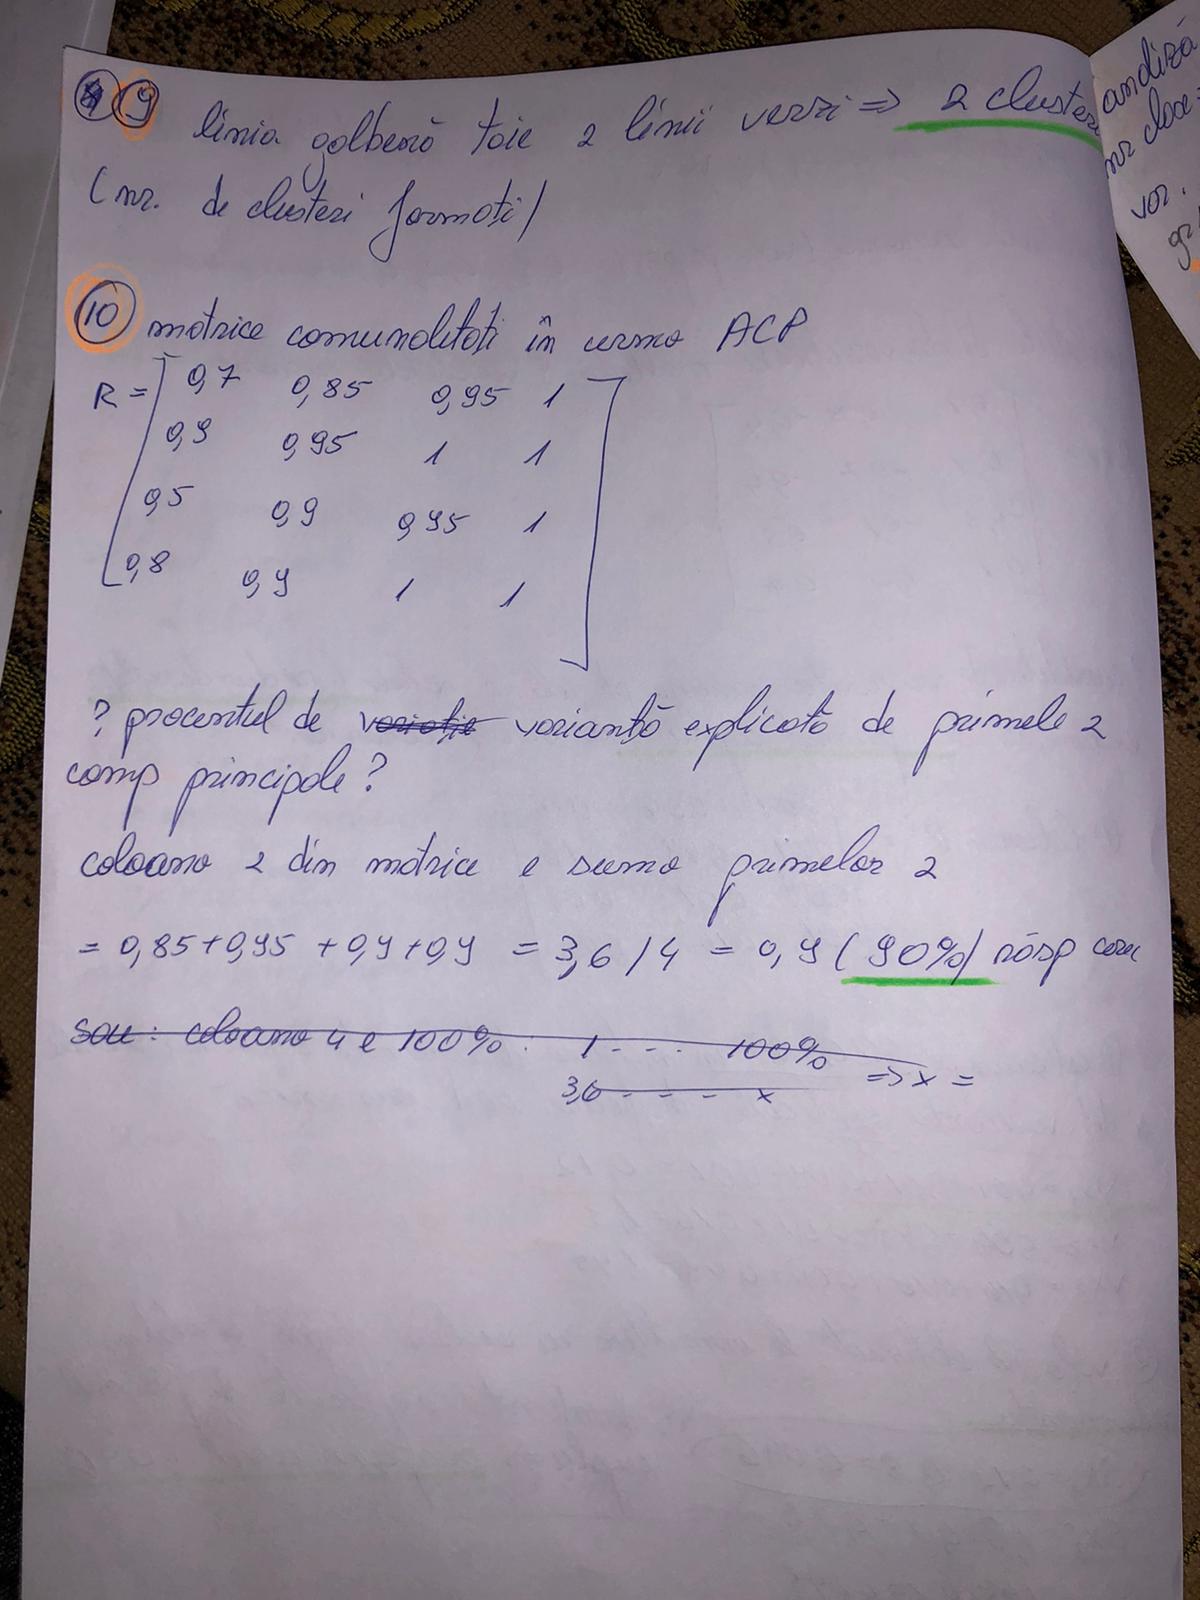 9 linia galbenă taie 2 linii verzi => 2 clusteri
(nr. de clusteri formați)
10 matrice comunalități în urma ACP
R = 0,7 0,85 0,95 1
0,9 0,95 1 1
0,5 0,9 0,95 1
0,8 0,9 1 1
? procentul de variație varianță explicată de primele 2
comp principale?
coloana 2 din matrice e suma primelor 2
= 0,85+0,95+0,9+0,9 = 3,6/4 = 0,9 (90%) răsp
sau: coloana 4 e 100% : 1 - - - 100%
3,6 - - - x => x =
nr
vor.